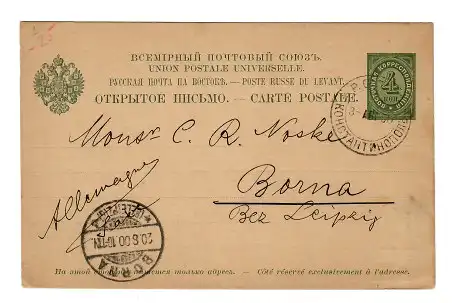 ВСЕМІРНЫЙ ПОЧТОВЫЙ СОЮЗЪ.
UNION POSTALE UNIVERSELLE.
РУССКАЯ ПОЧТА НА ВОСТОКѢ. — POSTE RUSSE DU LEVANT.
ОТКРЫТОЕ ПИСЬМО. — CARTE POSTALE.
ВОСТОЧНАЯ КОРРЕСПОНДЕНЦІЯ
4
КОП
КОНСТАНТИНОПОЛЬ
Monsr C. R. Noske
Allemagne
Borna
Bez Leipzig
BORNA
20.8.00.10-11V.
На этой сторонѣ пишется только адресъ. — Côté réservé exclusivement à l'adresse.